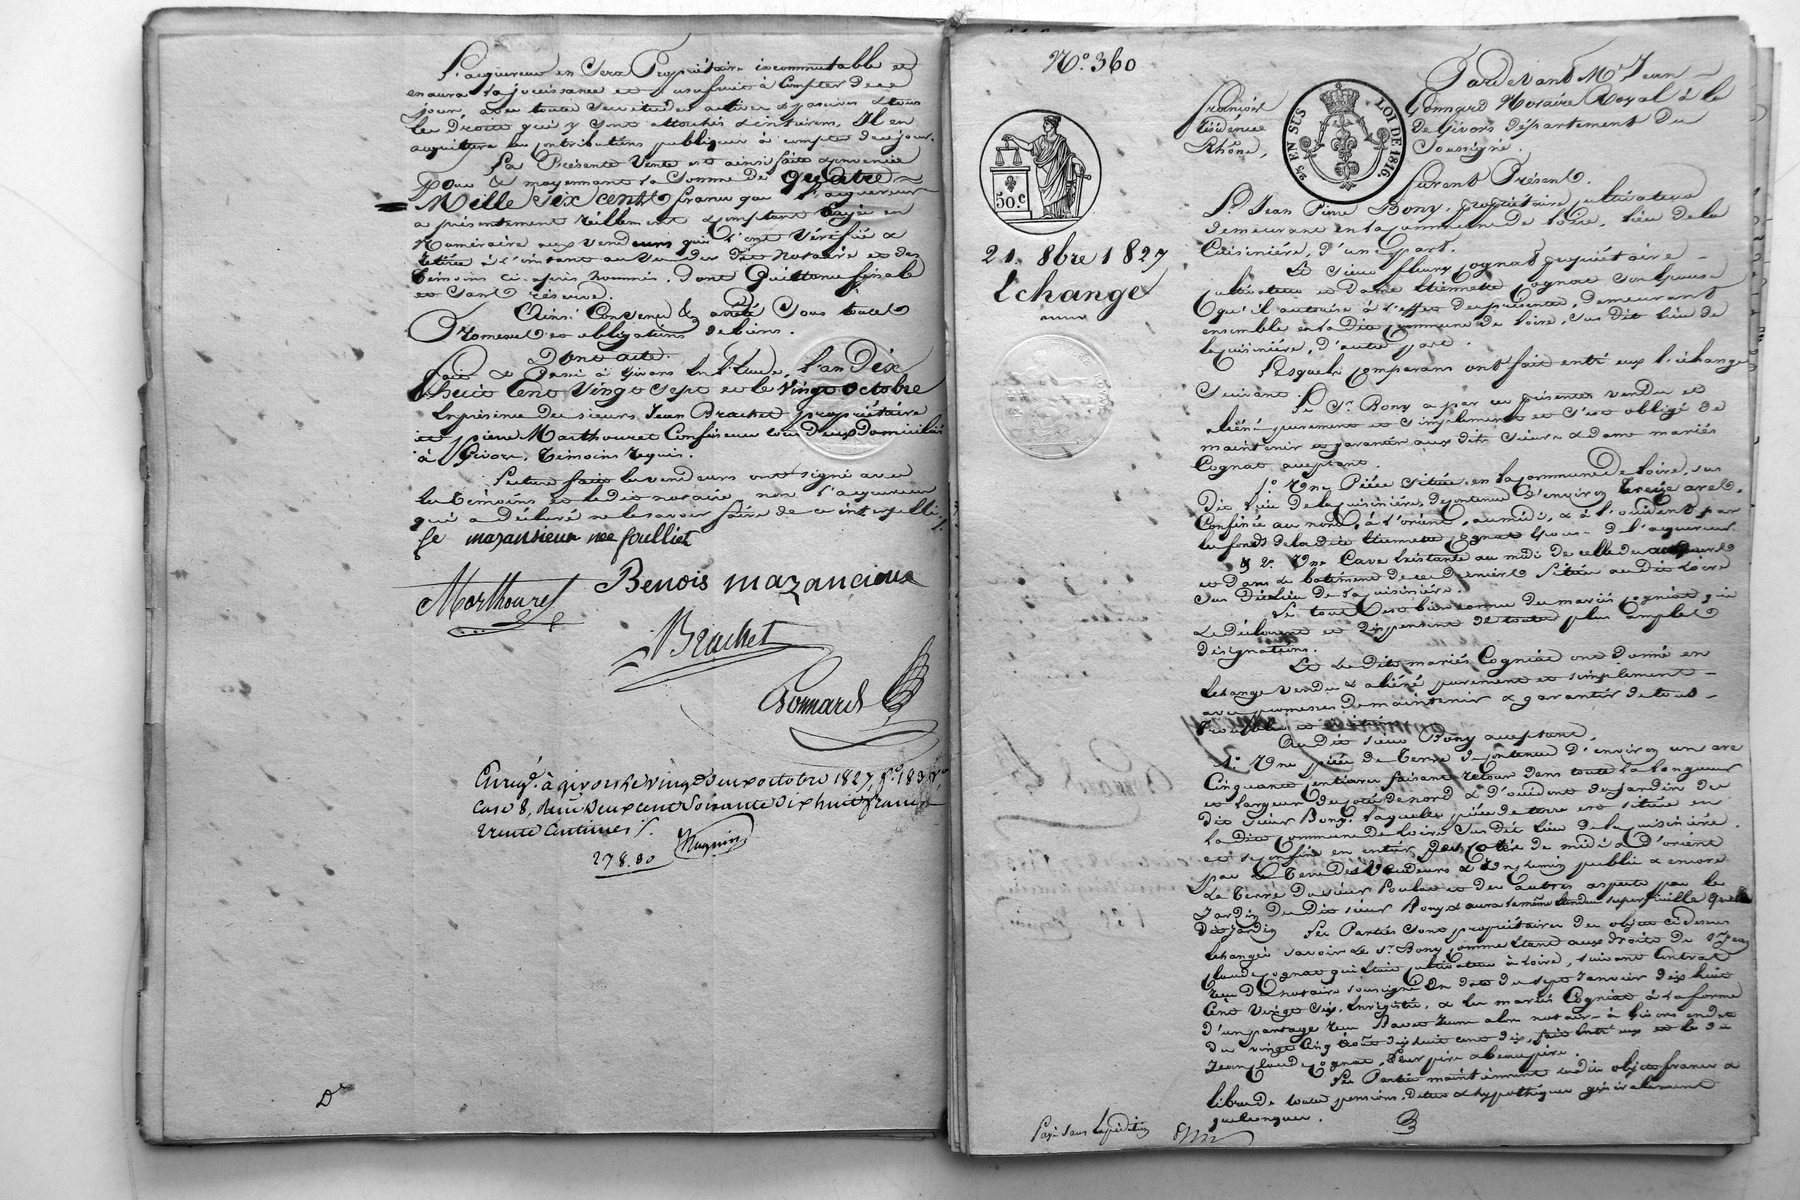 L'acquereur en Sera Propriétaire incommutable et
en aura la jouissance et usufruit à Compter de ce
jour, avec toutes Servitudes actives & passives & tous
les droits qui y sont attachés & inhérens. Il en
acquittera les contributions publiques à compter de ce jour.
La Présente Vente est ainsi faite & convenue
pour & moyennant la Somme de quatre
Mille Six Cents francs que l'acquereur
a présentement réellement & comptant payée en
Numéraire aux vendeurs qui l'ont vérifiée &
retirée à l'instant au vu du dit notaire et des
témoins ci-après nommés. dont Quittance finale
et sans réserve.
Ainsi Convenu & arrêté Sous toutes
Promesses et obligations de biens.
Dont acte.
Fait & Passé à Givors En l'Etude, L'an Dix
huit Cent Vingt Sept et le Vingt Octobre
En présence des sieurs Jean Brachet propriétaire
et pierre Marthouret Confiseur tous deux Domiciliés
à Givors, témoins requis.
Lecture faite les vendeurs ont signé avec
les témoins et le dit notaire non l'acquereur
qui a déclaré ne le savoir faire de ce interpellé
mazansieux nee foulliet
Marthouret Benois mazancieux
Brachet
Gonnard
Enregé. à givors le vingt deux octobre 1827, fo. 183
case 8, Reçu deux cent Soixante dix huit francs
trente Centimes
278.30
Dr
No. 360
Pardevant Me. Jean
François Gonnard Notaire Royal à la
résidence de Givors département du
Rhône, Soussigné.
25 EN SUS
LOI DE 1816.
50.c
21. 8bre 1827
Echange
Furent Présents.
Sr. Jean Pierre Bony, propriétaire cultivateur
demeurant en la commune de Loire, lieu de la
Cuisinière, d'une part.
Et Sieur fleury Cognat propriétaire
cultivateur et dame Etiennette Cognat son Epouse
qu'il autorise à l'effet des présentes, demeurant
ensemble en la dite commune de Loire, sus dit lieu de
la cuisinière, d'autre part.
Lesquels comparans ont fait entre eux l'échange
Suivant.
Le Sr. Bony a par ces présentes vendu et
aliéné purement et simplement et s'est obligé de
maintenir et garantir aux dits Sieur & dame mariés
Cognat acceptant.
1o. Une Pièce située en la commune de Loire, sus
dit lieu de la cuisinière, de contenue d'environ treize ares,
Confinée au nord, à l'orient, au midi, & à l'occident par
les fonds de la dite Etiennette Cognat
& 2o. Une Cave Existante au midi de celle des
et dans le batiment de ces derniers Située au dit Loire
sus dit lieu de la cuisinière.
Le tout est bien connu des mariés Cognat qui
le déclarent et dispensent de toute plus ample
désignation.
Et Les dits mariés Cognat ont donné en
Echange vendu & aliéné purement et simplement
avec promesses de maintenir & garantir de tous
Au dit sieur Bony acceptant,
1o. Une pièce de terre de contenue d'environ un are
Cinquante centiares faisant retour dans toute la longueur
et largeur du coté de nord & d'occident du jardin du
dit sieur Bony. laquelle pièce de terre est située en
la dite commune de Loire sus dit lieu de la cuisinière.
et se confine en entier des cotés de midi & d'orient
par la terre des Vendeurs & Un chemin public & encore
la terre du sieur Poulat et des autres aspects par le
jardin du dit sieur Bony & aura la même étendue superficielle que le
dit jardin Les Parties sont propriétaires des objets ci dessus
échangés savoir le Sr. Bony comme Etant aux droits de
Claude Cognat qui était cultivateur à Loire, suivant Contrat
reçu dit notaire soussigné En date du sept Janvier dix huit
Cent Vingt Six, Enregistré, & les mariés Cognat à la forme
d'un partage reçu alors notaire à Givors en date
du vingt Cinq dix huit cent dix, fait entre eux et le dit
Jean Claude Cognat, leur père & beau père.
Les Parties maintiennent les dits objets francs &
libres de toutes pensions, dettes & hypothèques généralement
quelconques.